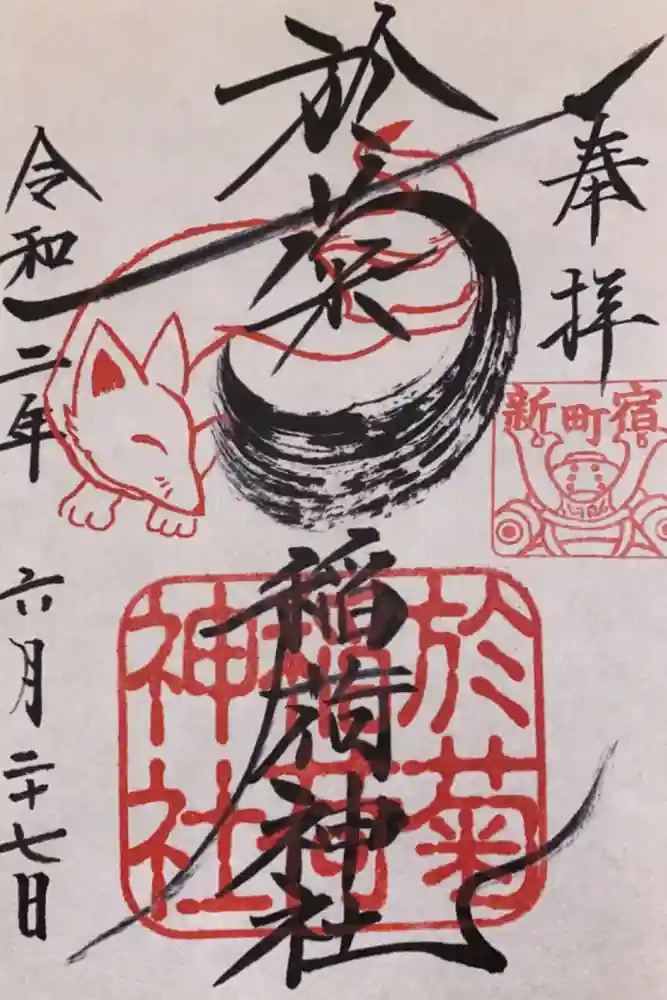 奉拝
新町宿
於菊稲荷神社
於菊
稲荷
神社
令和二年 六月二十七日